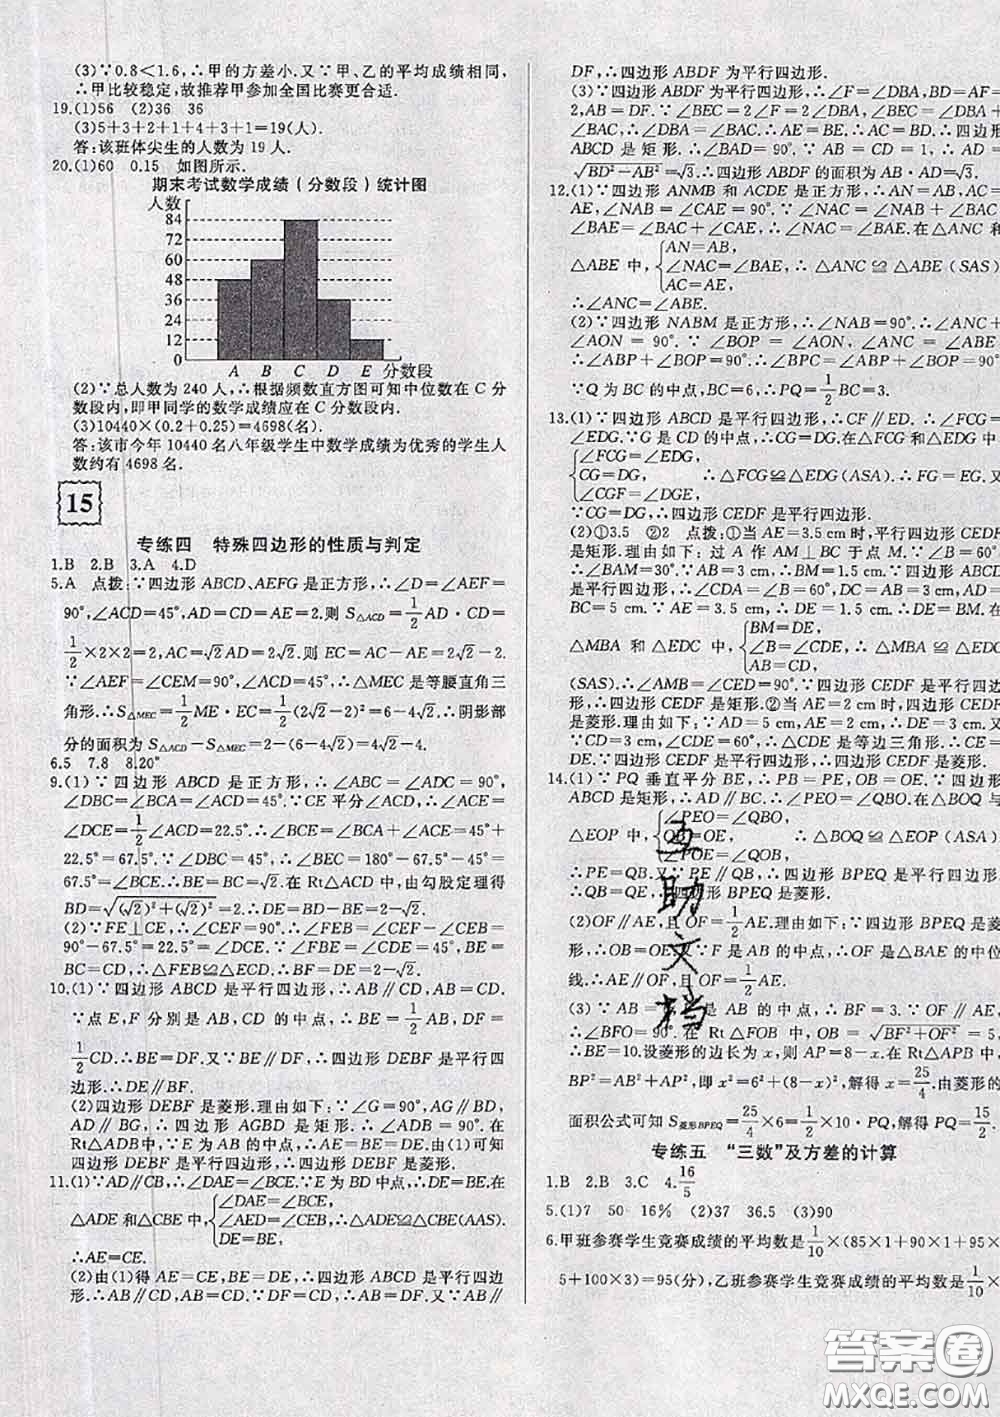 (3)∵0.8<1.6,∴甲的方差小.又∵甲、乙的平均成绩相同,
∴甲比较稳定,故推荐甲参加全国比赛更合适.
19.(1)56 (2)36 36
(3)5+3+2+1+4+3+1=19(人).
答:该班体尖生的人数为 19 人.
20.(1)60 0.15 如图所示.
期末考试数学成绩(分数段)统计图
人数
84
72
60
48
36
24
12
0
A B C D E 分数段
(2)∵总人数为 240 人,∴根据频数直方图可知中位数在 C 分
数段内,即甲同学的数学成绩应在 C 分数段内.
(3)10440×(0.2+0.25)=4698(名).
答:该市今年 10440 名八年级学生中数学成绩为优秀的学生人
数约有 4698 名.
15
专练四 特殊四边形的性质与判定
1.B 2.B 3.A 4.D
5.A 点拨:∵四边形 ABCD、AEFG 是正方形,∴∠D=∠AEF=
90°,∠ACD=45°,AD=CD=AE=2.则 S△ACD=1/2 AD·CD=
1/2×2×2=2,AC=√2AD=2√2.则 EC=AC-AE=2√2-2.
∵∠AEF=∠CEM=90°,∠ACD=45°,∴△MEC 是等腰直角三
角形.∴S△MEC=1/2 ME·EC=1/2(2√2-2)²=6-4√2.∴阴影部
分的面积为 S△ACD-S△MEC=2-(6-4√2)=4√2-4.
6.5 7.8 8.20°
9.(1)∵四边形 ABCD 是正方形,∴∠ABC=∠ADC=90°,
∠DBC=∠BCA=∠ACD=45°.∵CE 平分∠ACD,∴∠ACE=
∠DCE=1/2∠ACD=22.5°.∴∠BCE=∠BCA+∠ACE=45°+
22.5°=67.5°.∵∠DBC=45°,∴∠BEC=180°-67.5°-45°=
67.5°=∠BCE.∴BE=BC=√2.在 Rt△ACD 中,由勾股定理得
BD=√((√2)²+(√2)²)=2.∴DE=BD-BE=2-√2.
(2)∵FE⊥CE,∴∠CEF=90°.∴∠FEB=∠CEF-∠CEB=
90°-67.5°=22.5°=∠DCE.∵∠FBE=∠CDE=45°,BE=
BC=CD,∴△FEB≌△ECD.∴BF=DE=2-√2.
10.(1)∵四边形 ABCD 是平行四边形,∴AB∥CD,AB=CD.
∵点 E,F 分别是 AB,CD 的中点,∴BE=1/2 AB,DF=
1/2 CD.∴BE=DF.又∵BE∥DF,∴四边形 DEBF 是平行四
边形.∴DE∥BF.
(2)四边形 DEBF 是菱形.理由如下:∵∠G=90°,AG∥BD,
AD∥BG,∴四边形 AGBD 是矩形.∴∠ADB=90°.在
Rt△ADB中,∵E 为 AB 的中点,∴AE=BE=DE.由(1)可知
四边形 DEBF 是平行四边形,∴四边形 DEBF 是菱形.
11.(1)∵AD∥CB,∴∠DAE=∠BCE.∵E 为 BD 中点,∴BE=DE.在
△ADE 和△CBE 中,{∠DAE=∠BCE, ∠AED=∠CEB, DE=BE, ∴△ADE≌△CBE(AAS).
∴AE=CE.
(2)由(1)得 AE=CE,BE=DE,∴四边形 ABCD 是平行四边
形.∴AB∥CD,AB=CD.∵DF=CD,∴DF=AB.又∵AB∥
DF,∴四边形 ABDF 为平行四边形.
(3)∵四边形 ABDF 为菱形,∴∠F=∠DBA,BD=AF=
2,AB=DF.∵∠BEC=2∠F=2∠DBA,∠BEC=∠DBA+
∠BAC,∴∠DBA=∠BAC.∴AE=BE.∴AC=BD.∴四边形
ABCD 是矩形.∴∠BAD=90°.∵AB=DF=1,∴AD=
√(BD²-AB²)=√3.∴四边形 ABDF 的面积为 AB·AD=√3.
12.(1)∵四边形 ANMB 和 ACDE 是正方形,∴AN=AB,AC=
AE,∠NAB=∠CAE=90°.∵∠NAC=∠NAB+∠BAC,
∠BAE=∠BAC+∠CAE,∴∠NAC=∠BAE.在△ANC 和
△ABE 中,{AN=AB, ∠NAC=∠BAE, AC=AE, ∴△ANC≌△ABE(SAS).
∴∠ANC=∠ABE.
(2)∵四边形 NABM 是正方形,∴∠NAB=90°.∴∠ANC+
∠AON=90°.∵∠BOP=∠AON,∠ANC=∠ABE,
∴∠ABP+∠BOP=90°.∴∠BPC=∠ABP+∠BOP=90°.
∵Q 为 BC 的中点,BC=6,∴PQ=1/2 BC=3.
13.(1)∵四边形 ABCD 是平行四边形,∴CF∥ED.∴∠FCG=
∠EDG.∵G 是 CD 的中点,∴CG=DG.在△FCG 和△EDG 中,
{∠FCG=∠EDG, CG=DG, ∠CGF=∠DGE, ∴△FCG≌△EDG(ASA).∴FG=EG.又
∵CG=DG,∴四边形 CEDF 是平行四边形.
(2)①3.5 ②2 点拨:①当 AE=3.5 cm时,平行四边形 CEDF
是矩形.理由如下:过 A 作 AM⊥BC 于点 M.∵∠B=60°,
∴∠BAM=30°.∵AB=3 cm,∴BM=1.5 cm.∵四边形 ABCD
是平行四边形,∴∠CDA=∠B=60°,DC=AB=3 cm,BC=AD=
5 cm.∵AE=3.5 cm,∴DE=1.5 cm.∴DE=BM.在
△MBA 和△EDC 中,{BM=DE, ∠B=∠CDA, AB=CD, ∴△MBA≌△EDC
(SAS).∴∠AMB=∠CED=90°.∵四边形 CEDF 是平行
四边形,∴四边形 CEDF 是矩形.②当 AE=2 cm 时,四边形 CEDF
是菱形.理由如下:∵AD=5 cm,AE=2 cm,∴DE=3 cm.又
∵CD=3,∠CDE=60°,∴△CDE是等边三角形.∴CE=
DE.∵四边形 CEDF 是平行四边形,∴四边形 CEDF 是菱形.
14.(1)∵PQ 垂直平分 BE,∴PB=PE,OB=OE.∵四边形
ABCD 是矩形,∴AD∥BC.∴∠PEO=∠QBO.在△BOQ 与
△EOP 中,{∠PEO=∠QBO, OB=OE, ∠POE=∠QOB, ∴△BOQ≌△EOP(ASA).
∴PE=QB.又∵PE∥QB,∴四边形 BPEQ 是平行四边形.又
∵QB=QE,∴四边形BPEQ 是菱形.
(2)OF∥AE,且 OF=1/2 AE.理由如下:∵四边形 BPEQ 是菱
形,∴OB=OE.又∵F 是 AB 的中点,∴OF 是△BAE 的中位
线.∴AE∥OF,且 OF=1/2 AE.
是 AB 的中点,∴BF=3.∵OF∥AE,
∴∠BFO=90°.在 Rt△FOB 中,OB=√(BF²+OF²)=5.
∴BE=10.设菱形的边长为 x,则 AP=8-x.在 Rt△APB 中,
BP²=AB²+AP²,即 x²=6²+(8-x)².解得 x=25/4.由菱形的
面积公式可知 S菱形BPEQ=25/4×6=1/2×10·PQ,∴PQ=15/2.
专练五 “三数”及方差的计算
1.B 2.B 3.C 4.16/5
5.(1)7 50 16% (2)37 36.5 (3)90
6.甲班参赛学生竞赛成绩的平均数是1/10×(85×1+90×1+95×
5+100×3)=95(分),乙班参赛学生竞赛成绩的平均数是1/10×
互助文档
答案圈
MXQE.COM